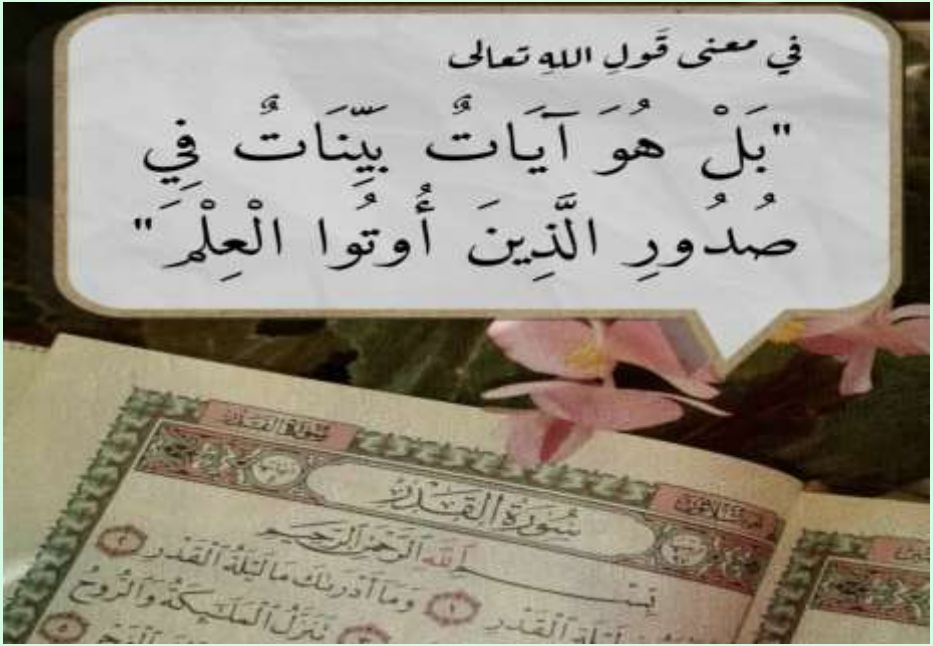 في معنى قَولِ اللهِ تعالى
"بَلْ هُوَ آيَاتٌ بَيِّنَاتٌ فِي
صُدُورِ الَّذِينَ أُوتُوا الْعِلْمَ"
سُورَةُ القَدْرِ
سُورَةُ القَدْرِ
بِسْمِ اللَّهِ الرَّحْمَٰنِ الرَّحِيمِ
الْقَدْرِ ١ وَمَا أَدْرَىٰكَ مَا لَيْلَةُ الْقَدْرِ ٢
تَنَزَّلُ الْمَلَٰٓئِكَةُ وَالرُّوحُ